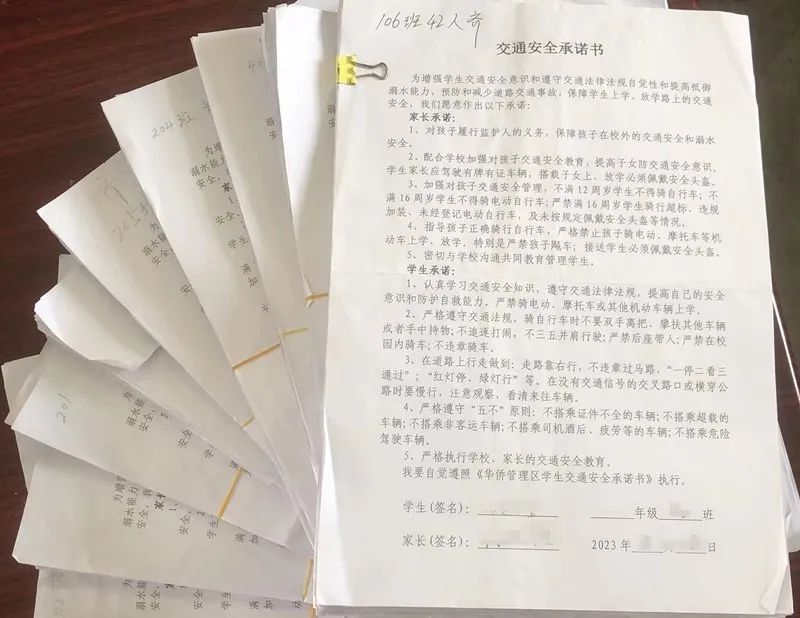 106班42人齐
交通安全承诺书
为增强学生交通安全意识和遵守交通法律法规自觉性和提高抵御
溺水能力，预防和减少道路交通事故，保障学生上学、放学路上的交通
安全，我们愿意作出以下承诺：
家长承诺：
1、对孩子履行监护人的义务，保障孩子在校外的交通安全和溺水
安全。
2、配合学校加强对孩子交通安全教育，提高子女防交通安全意识。
学生家长应驾驶有牌有证车辆，搭载子女上、放学必须佩戴安全头盔。
3、加强对孩子交通安全管理，不满12周岁学生不得骑自行车；不
满16周岁学生不得骑电动自行车；严禁满16周岁学生骑行超标、违规
加装、未经登记电动自行车，及未按规定佩戴安全头盔等情况。
4、指导孩子正确骑行自行车，严格禁止孩子骑电动、摩托车等机
动车上学、放学，特别是严禁孩子飚车；接送学生必须佩戴安全头盔。
5、密切与学校沟通共同教育管理学生。
学生承诺：
1、认真学习交通安全知识，遵守交通法律法规，提高自己的安全
意识和防护自救能力。严禁骑电动、摩托车或其他机动车辆上学。
2、严格遵守交通法规，骑自行车时不要双手离把、攀扶其他车辆
或者手中持物；不追逐打闹，不三五并肩行驶；严禁后座带人；严禁在校
园内骑车；不违章骑车。
3、在道路上行走做到：走路靠右行，不违章过马路，“一停二看三
通过”；“红灯停、绿灯行”等。在没有交通信号的交叉路口或横穿公
路时要慢行，注意观察、看清来往车辆。
4、严格遵守“五不”原则：不搭乘证件不全的车辆；不搭乘超载的
车辆；不搭乘非客运车辆；不搭乘司机酒后、疲劳等的车辆；不搭乘危险
驾驶车辆。
5、严格执行学校、家长的交通安全教育。
我要自觉遵照《华侨管理区学生交通安全承诺书》执行。
学生(签名)：
年级 班
家长(签名)：
2023年 日
204班
201